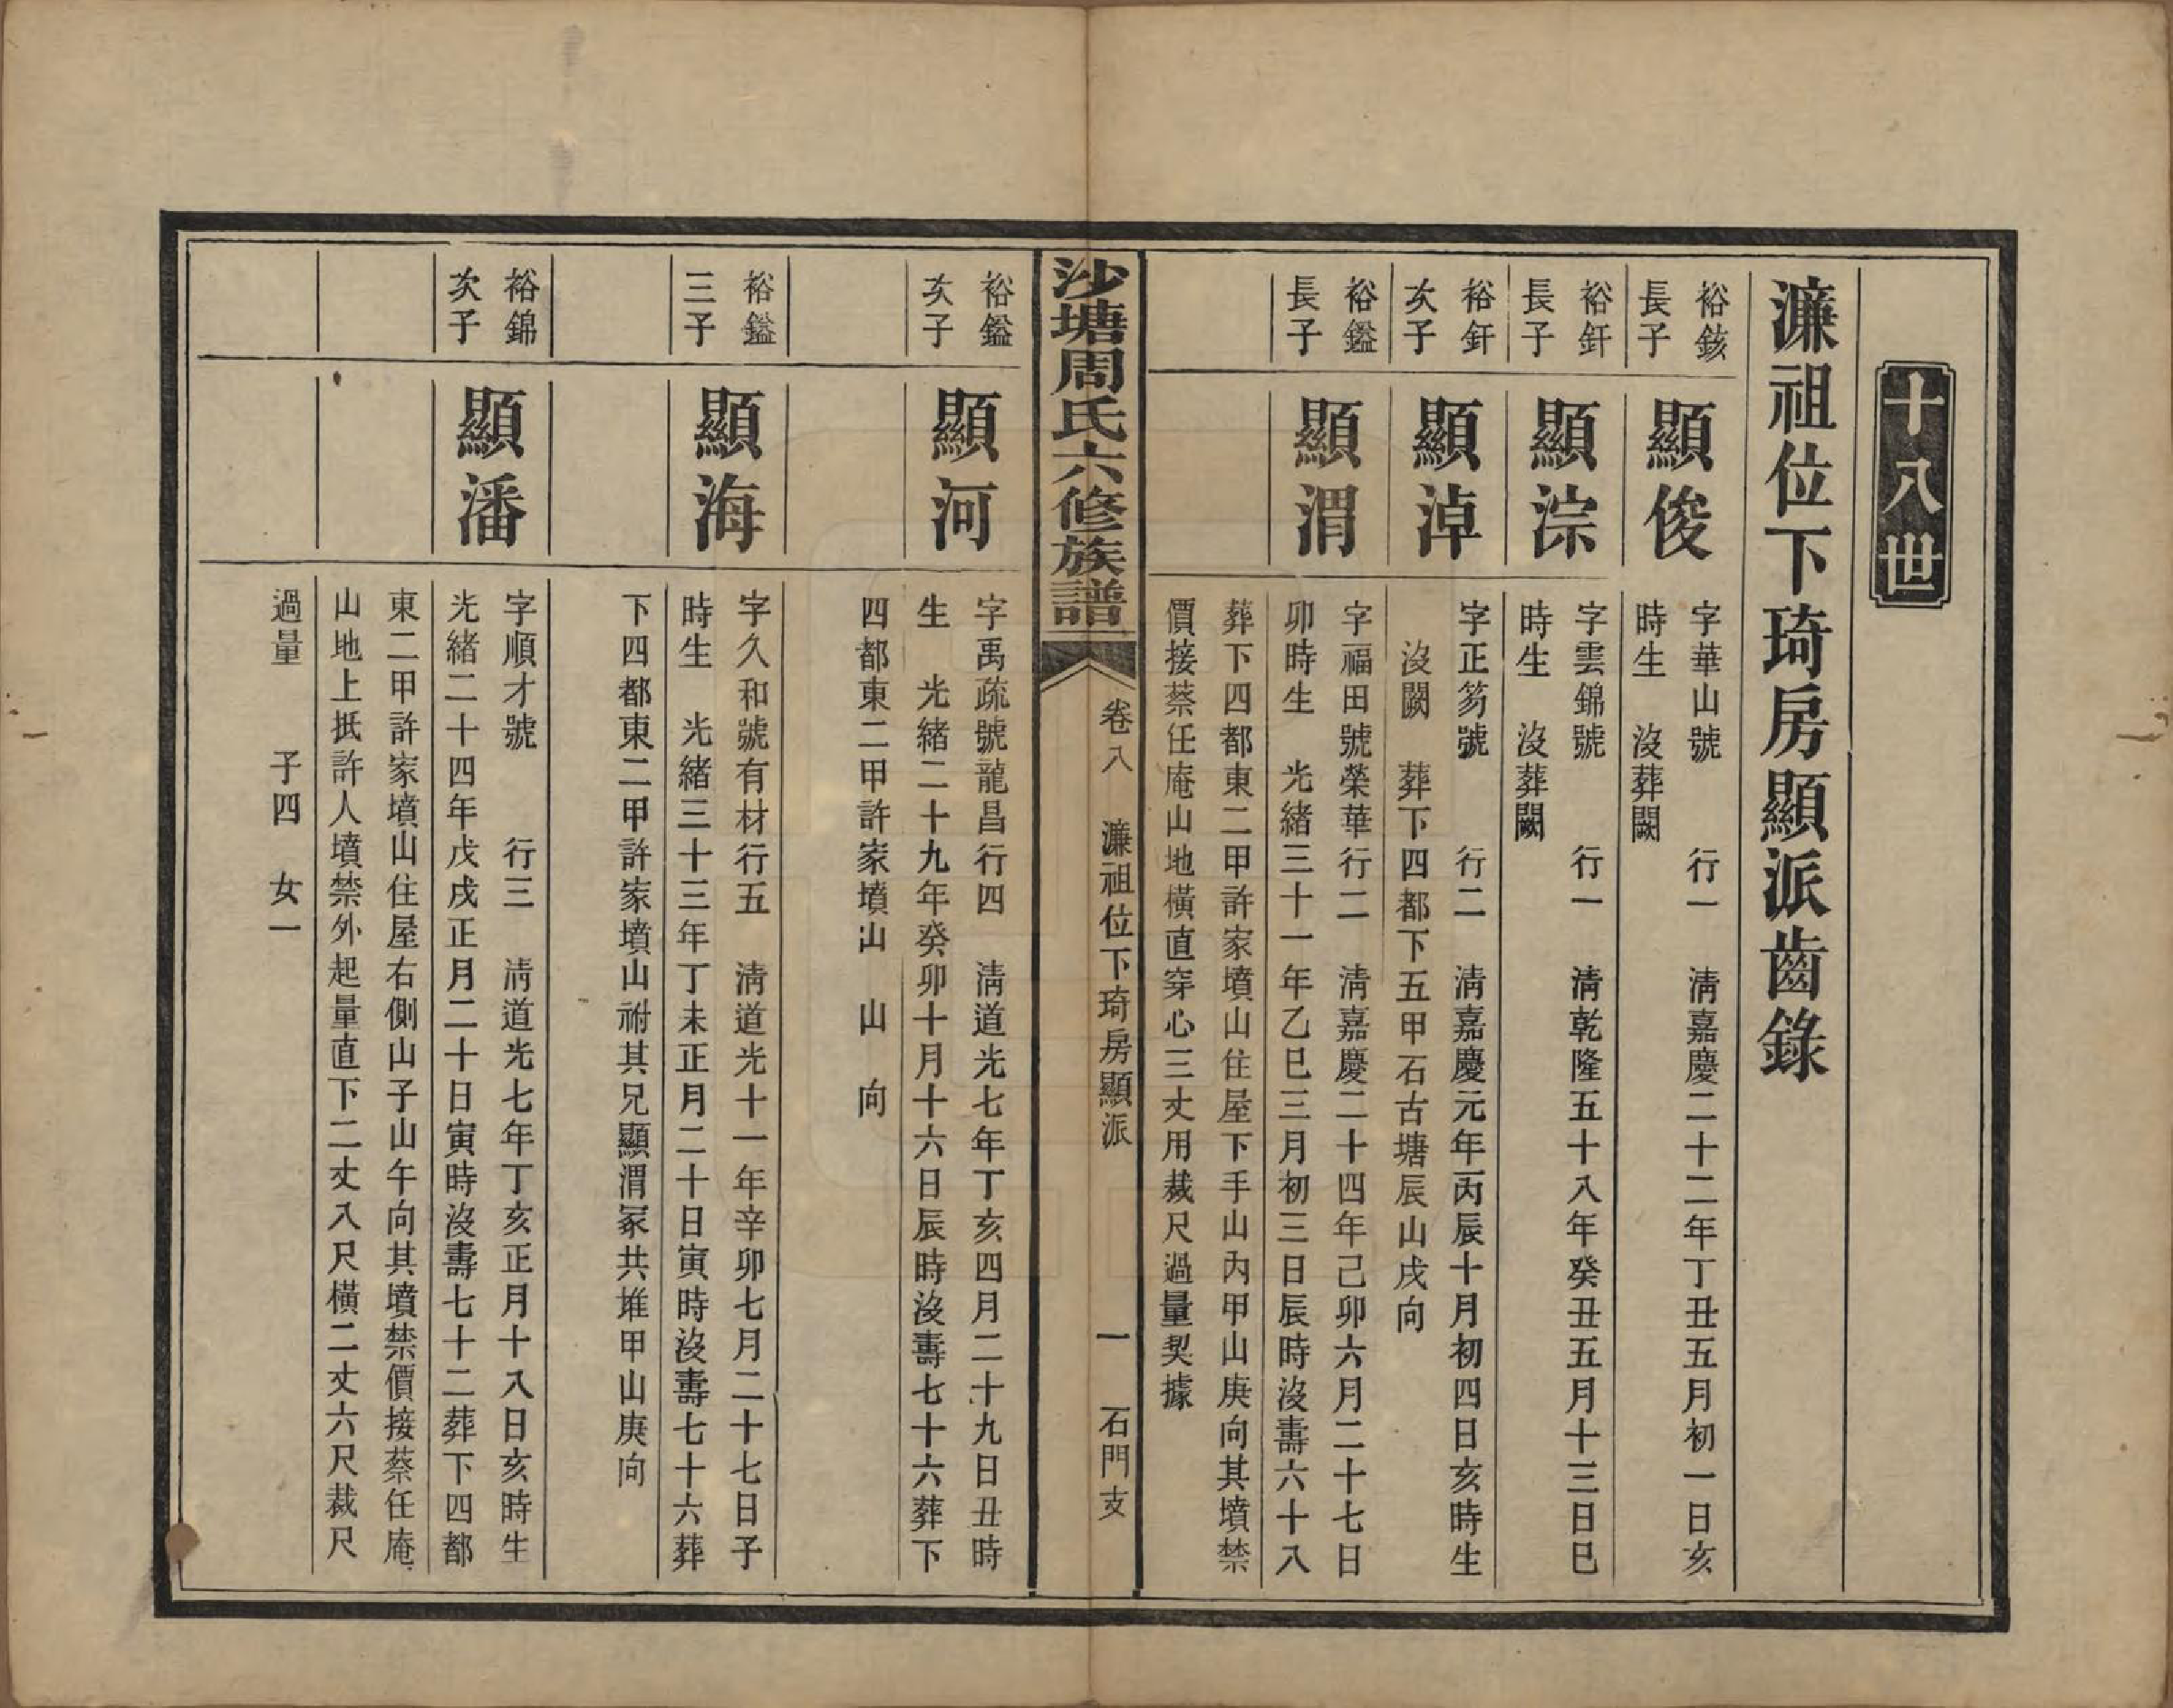 十八世
濂祖位下琦房顯派齒錄
裕鋑
長子
顯俊
字華山號　　行一　清嘉慶二十二年丁丑五月初一日亥
時生　沒葬闕
裕釬
長子
顯淙
字雲錦號　　行一　清乾隆五十八年癸丑五月十三日巳
時生　沒葬闕
裕釬
次子
顯淖
字正笏號　　行二　清嘉慶元年丙辰十月初四日亥時生
沒闕　葬下四都下五甲石古塘辰山戌向
裕鑑
長子
顯渭
字福田號榮華行二　清嘉慶二十四年己卯六月二十七日
卯時生　光緒三十一年乙巳三月初三日辰時沒壽六十八
葬下四都東二甲許家墳山住屋下手山內甲山庚向其墳禁
價接蔡任庵山地橫直穿心三丈用裁尺過量契據
沙塘周氏六修族譜
卷八　濂祖位下琦房顯派　一　石門支
裕鑑
次子
顯河
字禹疏號龍昌行四　清道光七年丁亥四月二十九日丑時
生　光緒二十九年癸卯十月十六日辰時沒壽七十六葬下
四都東二甲許家墳山　山　向
裕鑑
三子
顯海
字久和號有材行五　清道光十一年辛卯七月二十七日子
時生　光緒三十三年丁未正月二十日寅時沒壽七十六葬
下四都東二甲許家墳山祔其兄顯渭冢共堆甲山庚向
裕錦
次子
顯潘
字順才號　　行三　清道光七年丁亥正月十八日亥時生
光緒二十四年戊戌正月二十日寅時沒壽七十二葬下四都
東二甲許家墳山住屋右側山子山午向其墳禁價接蔡任庵
山地上抵許人墳禁外起量直下二丈八尺橫二丈六尺裁尺
過量　　子四　女一